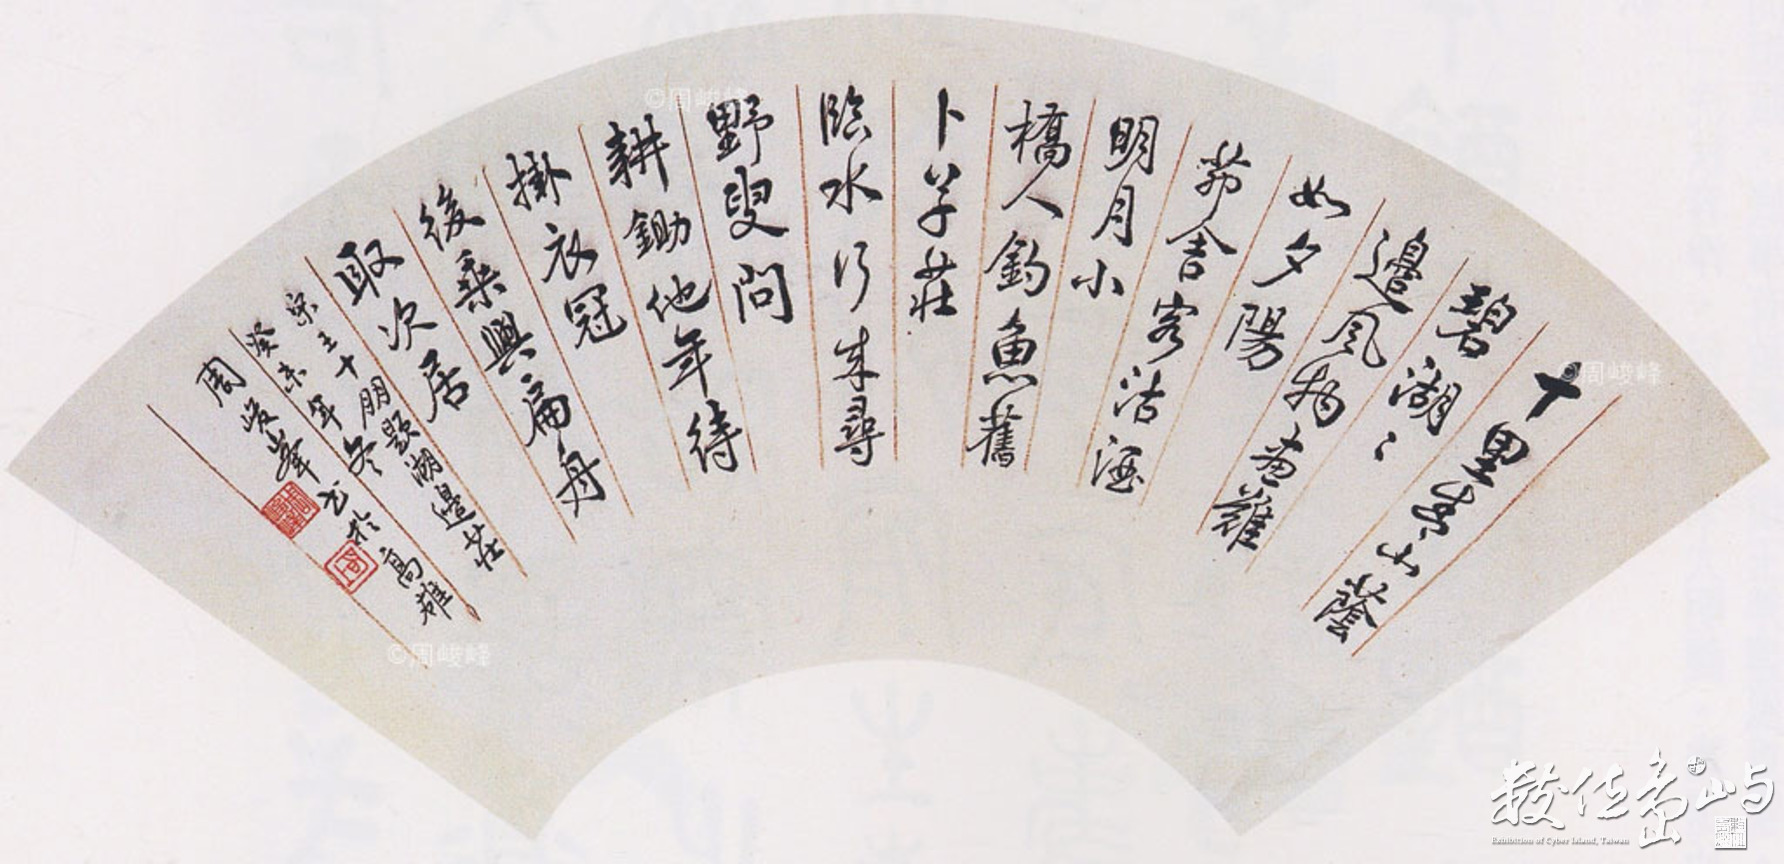 十里青山蔭
碧湖〻
邊風物畫難
如夕陽
茆舍客沽酒
明月小
橋人釣魚舊
卜草莊
臨水竹來尋
野叟問
耕鋤他年待
掛衣冠
後乘興扁舟
取次居
宋王十朋題湖邊莊
癸未年冬書於高雄
周峻峯
©周峻峰
©周峻峰
©周峻峰
數位島嶼
Exhibition of Cyber Island, Taiwan